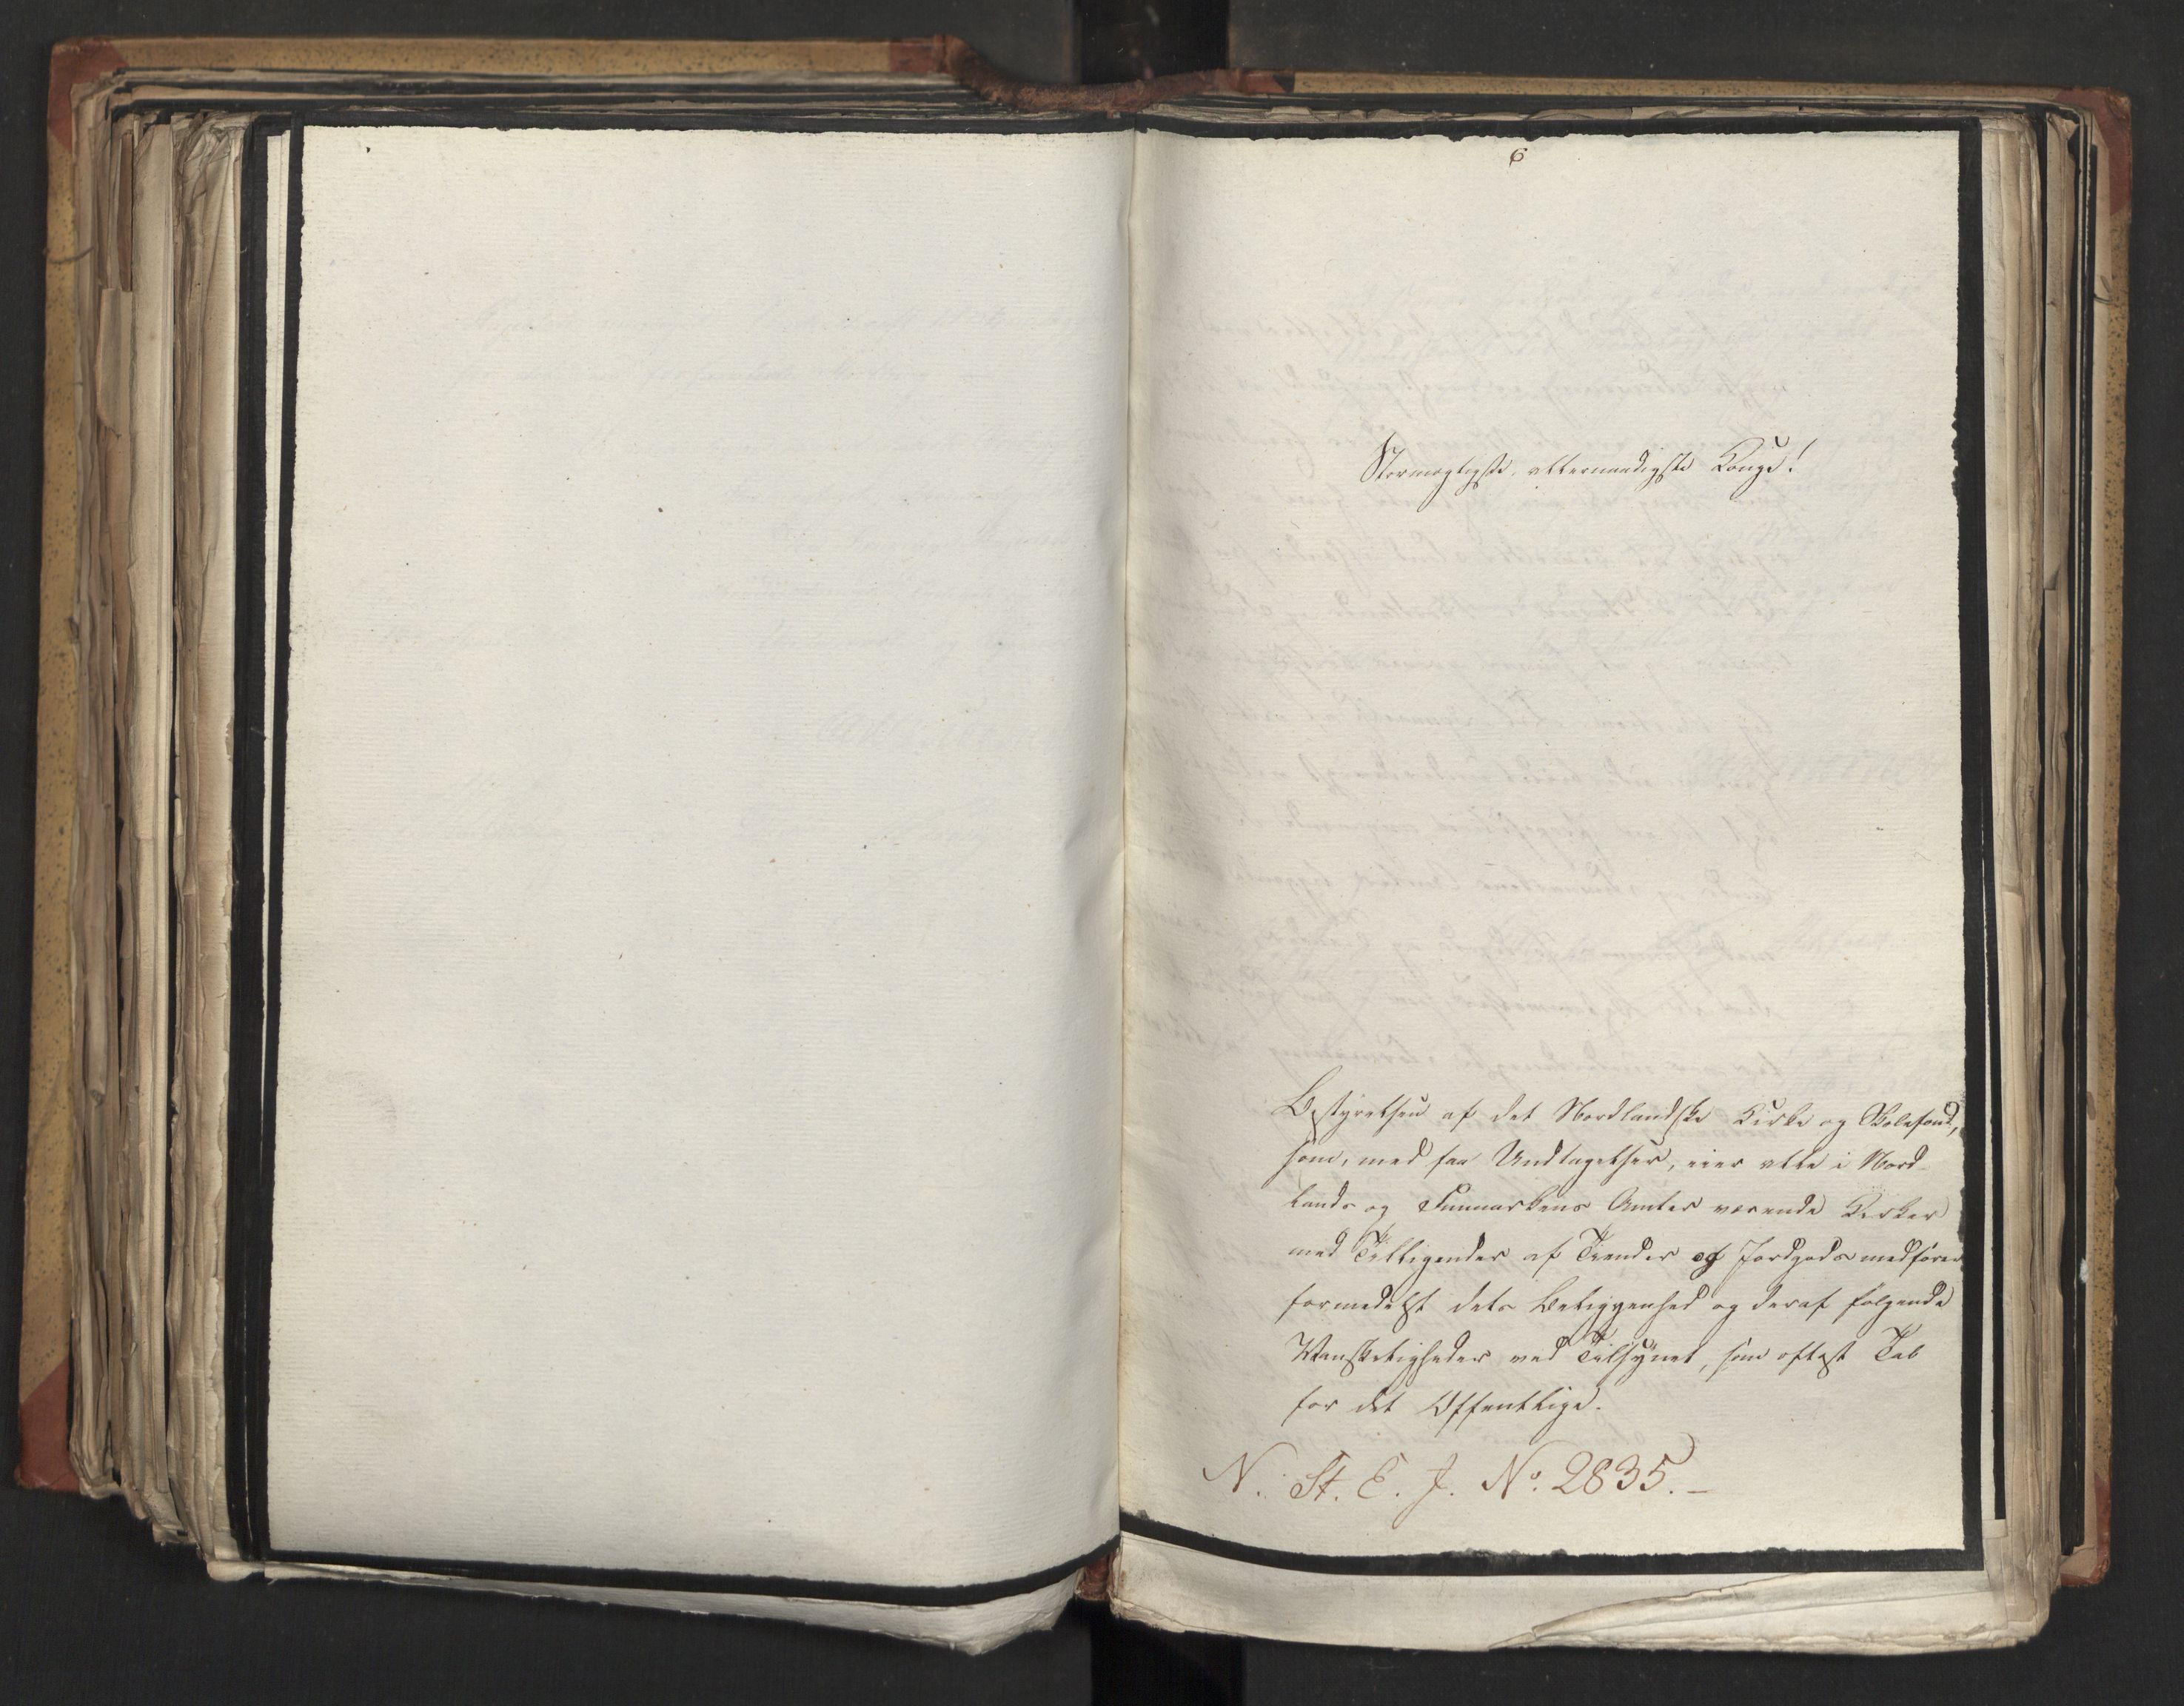 6
Stormægtigste, allernaadigste Konge!
Bestyrelsen af det Nordlandske Kirke og Skolefond,
som, med faa Undtagelser, eier alle i Nord-
lands og Finmarkens Amter værende Kirker
med Tilliggender af Tiender og Jordgods medfører
formedelst dets Beliggenhed og deraf følgende
Vanskeligheder ved Tilsynet, som oftest Tab
for det Offentlige.
N. St. E. J. No. 2835.-